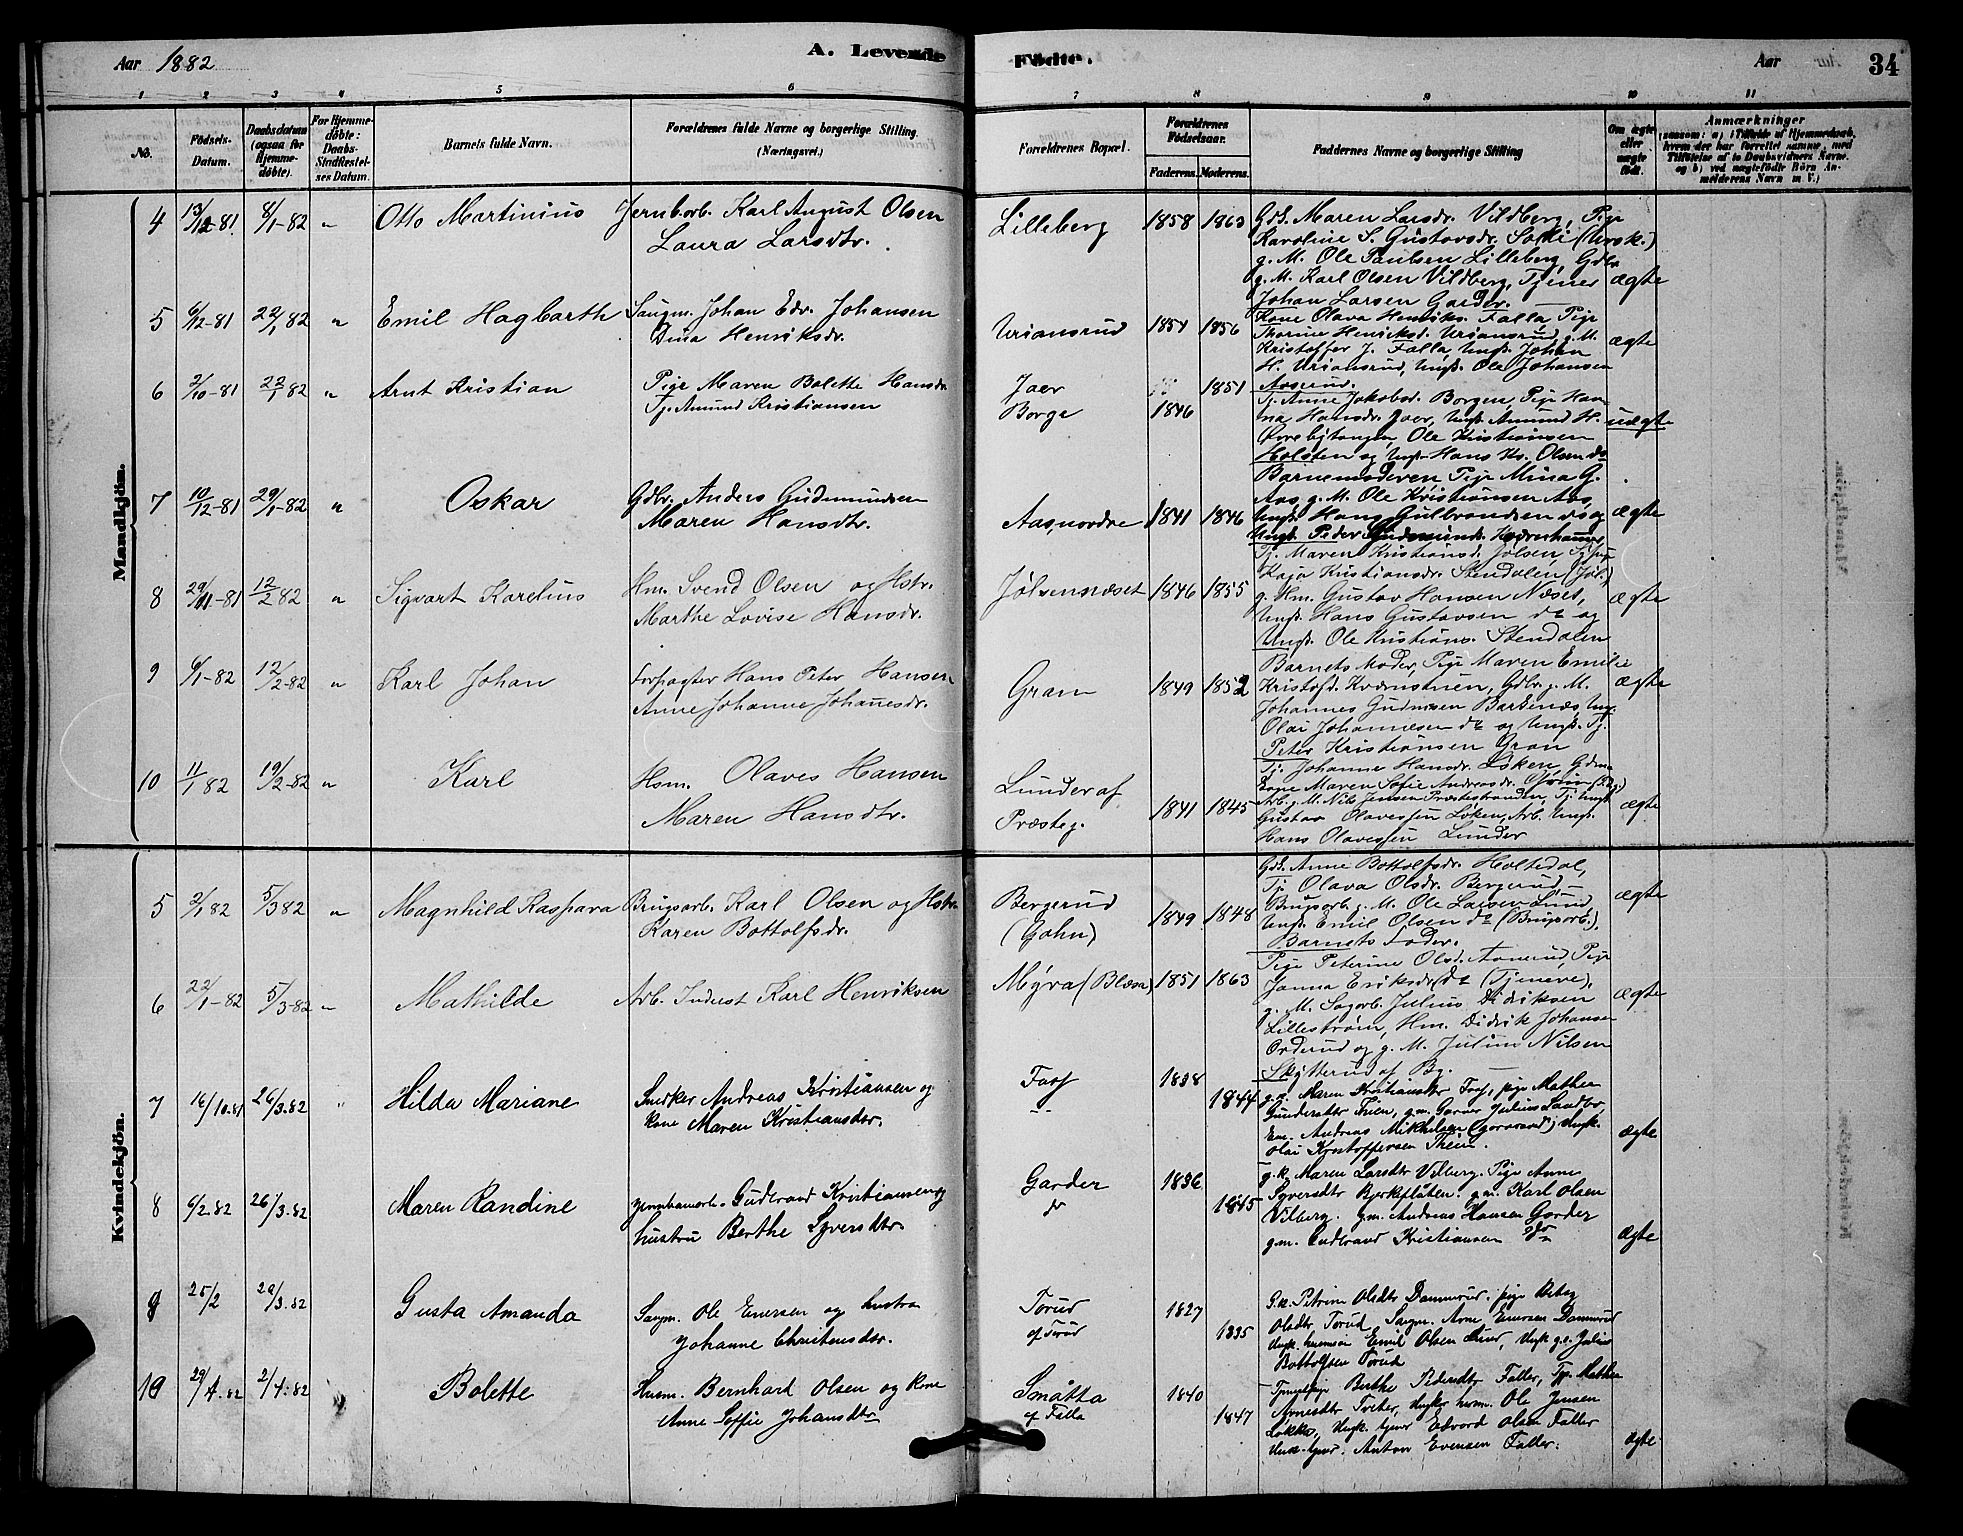 Aar 1882
A. Levende
1 2 3 4 5 6
No.
Fødsels-Datum.
Daabsdatum (ogsaa for Hjemmedøbte).
For Hjemmedøbte: Daabs-Stadfæstelses Datum.
Barnets fulde Navn.
Forældrenes fulde Navne og borgerlige Stilling.
(Næringsvei.)
Mandkjön.
4 13/12-81 8/1-82 " Otto Martinius Jernb.arb. Karl August Olsen
Laura Larsdtr.
5 6/12-81 22/1 82 " Emil Hagbarth Saugm. Johan Edv. Johansen
Dina Henriksdr.
6 2/10-81 22/1 82 " Arnt Kristian Pige Maren Bolette Hansdr
Tj. Amund Kristiansen
7 10/12-81 29/1-82 " Oskar Gdbr. Anders Gudmundsen
Maren Hansdtr.
8 29/11-81 12/2 82 " Sigvart Karelius Hm. Svend Olsen og Hstr.
Marthe Lovise Hansdr.
9 6/1-82 12/2-82 " Karl Johan Forpagter Hans Peter Hansen
Anne Johanne Johannesdr.
10 11/1 82 19/2-82 " Karl Hsm. Olaves Hansen
Maren Hansdtr.
Kvindekjön.
5 2/1 82 5/3 82 " Magnhild Kaspara Brugsarb. Karl Olsen og Hstr.
Karen Bottolfsdr.
6 22/1-82 5/3-82 " Mathilde Arb. Inderst Karl Henriksen
7 16/10.81 26/3.82 " Hilda Mariane Snedker Andreas Kristiansen og
kone Maren Kristiansdtr.
8 6/2.82 26/3.82 Maren Randine Gudbrand Kristiansen og
hustru Berthe Syversdtr
9 25/2 29/3.82 Gusta Amanda Saugm. Ole Evensen og hustru
Johanne Christensdtr.
10 29/4.82 2/4.82 Bolette Husm. Bernhard Olsen og kone
Anne Soffie Johansdtr
Fødte.
Aar
34
7 8 9 10 11
Forældrenes Bopæl.
Forældrenes Fødselsaar.
Faderens. Moderens.
Faddernes Navne og borgerlige Stilling
Om ægte eller uægte født.
Anmærkninger
(saasom: a) i Tilfælde af Hjemmedaab, hvem der har forrettet samme, med Tilføielse af to Daabsvidners Navne. og b) ved uægtefødte Börn Anmelderens Navn m V.)
Lilleberg 1858 1863 Gdk. Maren Larsdr. Vildberg, Pige
Karoline S. Gustavsdr.
g. M. Ole Paulsen Lilleberg, Gdbr
g. M. Karl Olsen Vildberg, Tjener ægte
Johan Larsen Garder.
Uriansrud 1851 1856 Kone Olava Henriks. Falla, Pige
Thorine Henriksd. Uriansrud, g. M.
Kristoffer J. Falla, Ungk. Johan ægte
H. Uriansrud, Ungk. Ole Johansen
Aaserud.
Jaer 1851
Borge 1846 Tj. Anne Jakobsd. Borgen, Pige Hanna
Hansdr. Jaer, Ungk. Amund H. uægte
Ole Kristiansen
Holsten og Ungk. Hans Kr. Olsen do
Aas, nordre 1841 1846 Barnemoderen Pige Mina G.
Aas g. M. Ole Kristiansen Aas,
Ungk. Hans Gulbrandsen do og ægte
Ungk. Peder Gudmunds.
Jølsensnæset 1846 1855 Tj. Maren Kristiansd. Jølsen,
Kaja Kristiansdr. Stendalen (Jøl.)
g. Hm. Gustav Hansen Næset, ægte
Ungk. Hans Gustavsen do og
Ungk. Ole Kristians. Stendalen
Gran 1849 1852 Barnets Moder, Pige Maren Emilie
Kristofd. Gdbr. g. M. ægte
Johannes Gudmsen
Olai Johannesen do og Ungk. Tj.
Peter Kristiansen Gran
Lunder af
Præsteg. 1841 1845 Tj. Johanne Hansdr. Løken, Gdm.
Kone Maren Sofie Andreasdr.
Arb. g. M. Nils Jensen Præstestranden, Tj. Ungk. ægte
Gustav Olavessen Løken, Arb. Ungk.
Hans Olavessen Lunder
Bergerud
(Gahn) 1849 1848 Gdk. Anne Bottolfsdr. Holtedal,
Tj. Olava Olsdr. Bergerud, ægte
Brugsarb. g. M. Ole Larsen Lund,
Ungk. Emil Olsen do (Brugsarb.),
Barnets Fader.
Myra (Blæsn) 1851 1863 Pige Peterine Olsd. Pige
Janna Eriksdr. do (Tjenere), ægte
g. M. Sagarb. Julius Didriksen
Lillestrøm, Hm. Didrik Johansen
Orderud og g. M. Julius Nilsen
Skytterud af By.
1838 1844 g. k. Maren Kristiansdtr pige Mathea
Gundersdtr Thien, g. m. Julius Sandbo,
Em. Andreas Mikkelsen Ungk. ægte
Olai Kristoffersen Thien.
Garder 1836
do 1845 g. k. Maren Larsdtr Vilberg. Pige Anne
Syversdtr Bjerkeflåten. g. m. Karl Olsen
Vilberg. g. m. Andreas Hansen Garder
g. m. Gudbrand Kristiansen do ægte
Torud 1827
1835 G. k. Petrine Olsdtr Dammerud. pige
Olsdtr Torud. Saugm. Arne Evensen Dammerud
Emil Olsen Ungk. g. s. Julius
Bottolfsen Torud
Småtta
af Falla 1840 1847 Tjenestepige Berthe Faller, Tjp. Mathea
Arnesdtr Ole Jensen
Løkka, Ungk. tjener Edvard Olsen Faller
Anton Evensen Faller. ægte